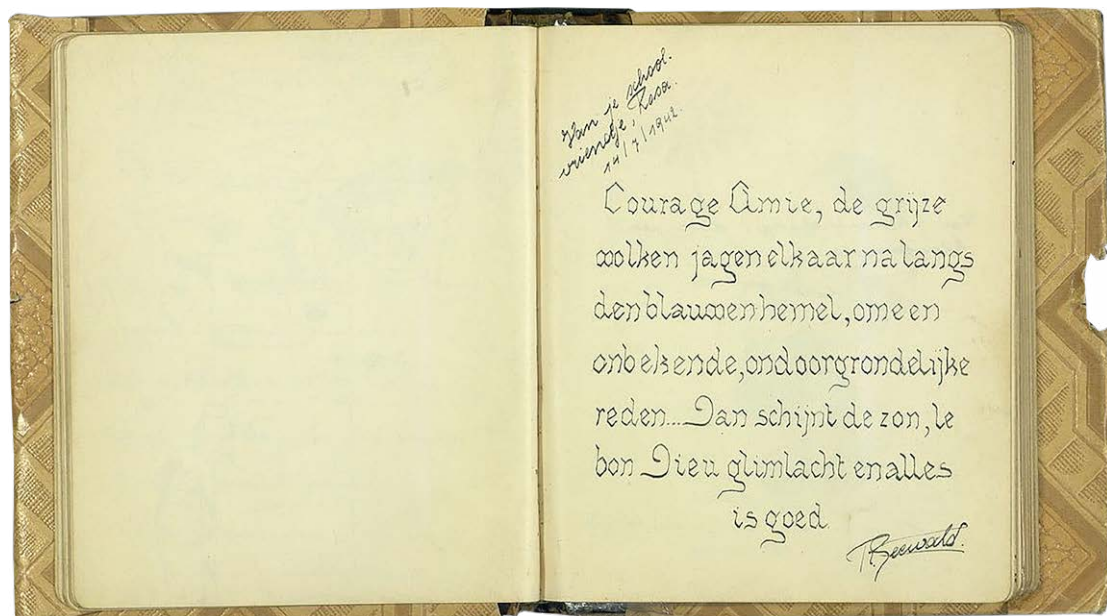 Van je school-
vriendje, Rosa.
14/7/1942.
Courage Amie, de grijze
wolken jagen elkaar na langs
den blauwen hemel, om een
onbekende, ondoorgrondelijke
reden.... Dan schijnt de zon, le
bon Dieu glimlacht en alles
is goed.